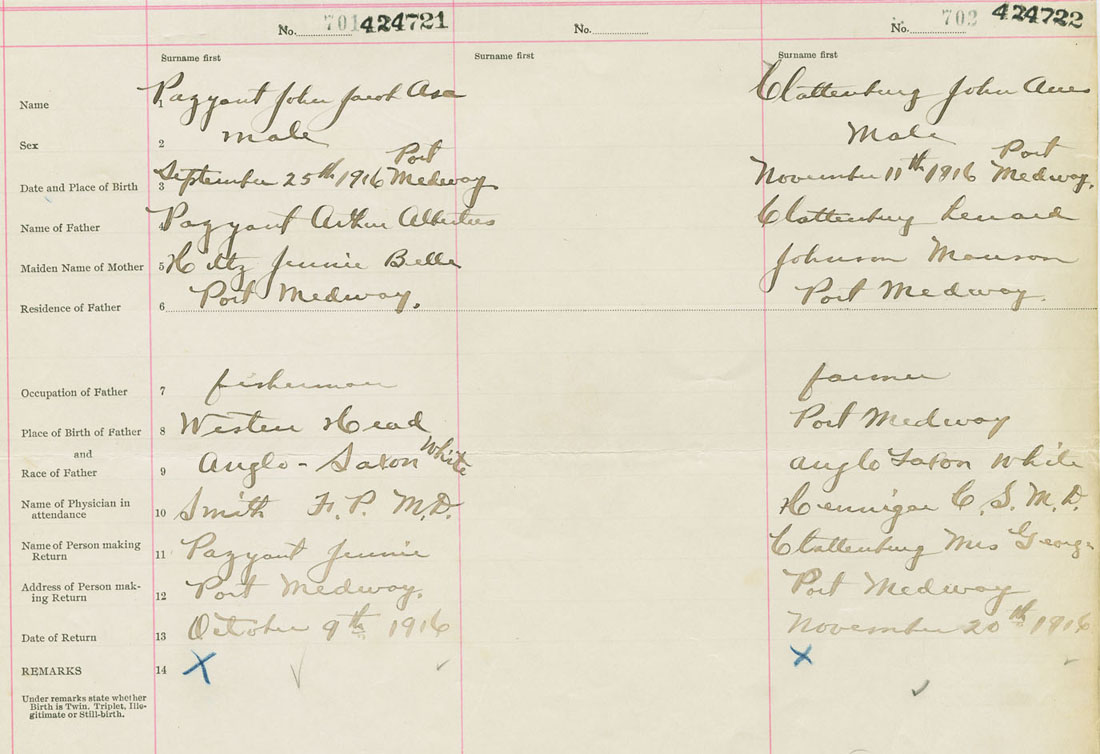 No. 701 424721 No. No. 702 424722
Surname first Surname first Surname first
Name Pazzant John Jacob Asa Clattenburg John
Sex 2 male Male
Port Port
Date and Place of Birth 3 September 25th 1916 Medway November 11th 1916 Medway.
Name of Father 4 Pazzant Arthur Albertus Clattenburg Lenard
Maiden Name of Mother 5 Hiltz Jennie Belle Johnson
Residence of Father 6 Port Medway. Port Medway.
Occupation of Father 7 fisherman farmer
Place of Birth of Father 8 Western Head Port Medway
and
Race of Father 9 Anglo-Saxon White anglo Saxon White
Name of Physician in
attendance 10 Smith F. P. M.D. Hennigar C. S. M.D.
Name of Person making
Return 11 Pazzant Jennie Clattenburg Mrs George
Address of Person mak-
ing Return 12 Port Medway. Port Medway
Date of Return 13 October 9th 1916 November 20th 1916
REMARKS 14 X X
Under remarks state whether
Birth is Twin, Triplet, Ille-
gitimate or Still-birth.